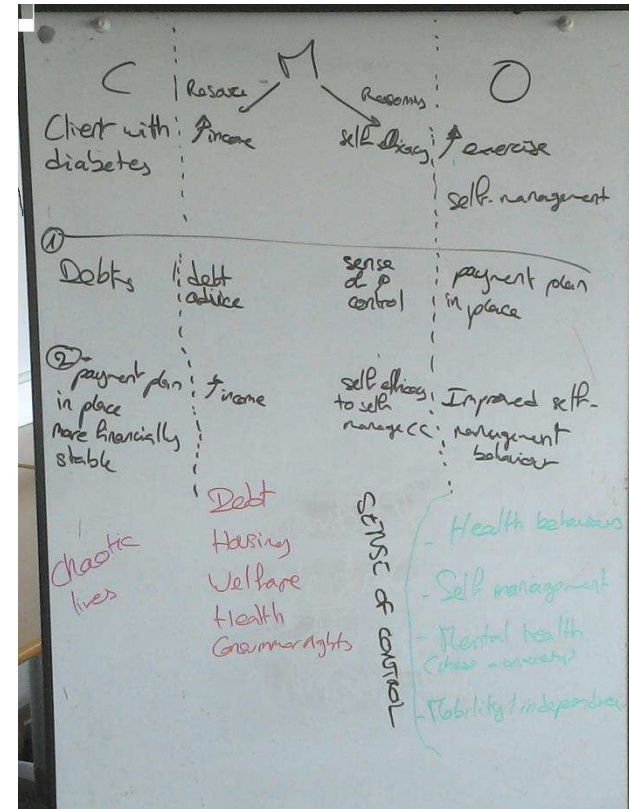 C
M
O
Resource
Reasoning
Client with
diabetes
↑ income
self efficacy
↑ exercise
self-management
①
Debts
debt
advice
sense
of
control
payment plan
in place
②
payment plan
in place
more financially
stable
↑ income
self efficacy
to self
manage CC
Improved self-
management
behaviour
chaotic
lives
Debt
Housing
Welfare
Health
Consumer rights
SENSE of CONTROL
- Health behaviours
- Self management
- Mental health
(stress + anxiety)
- Mobility / independence